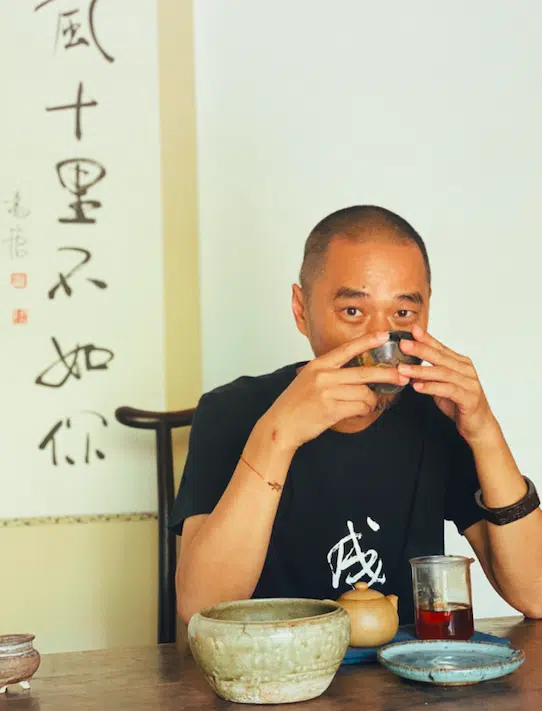 風十里不如你